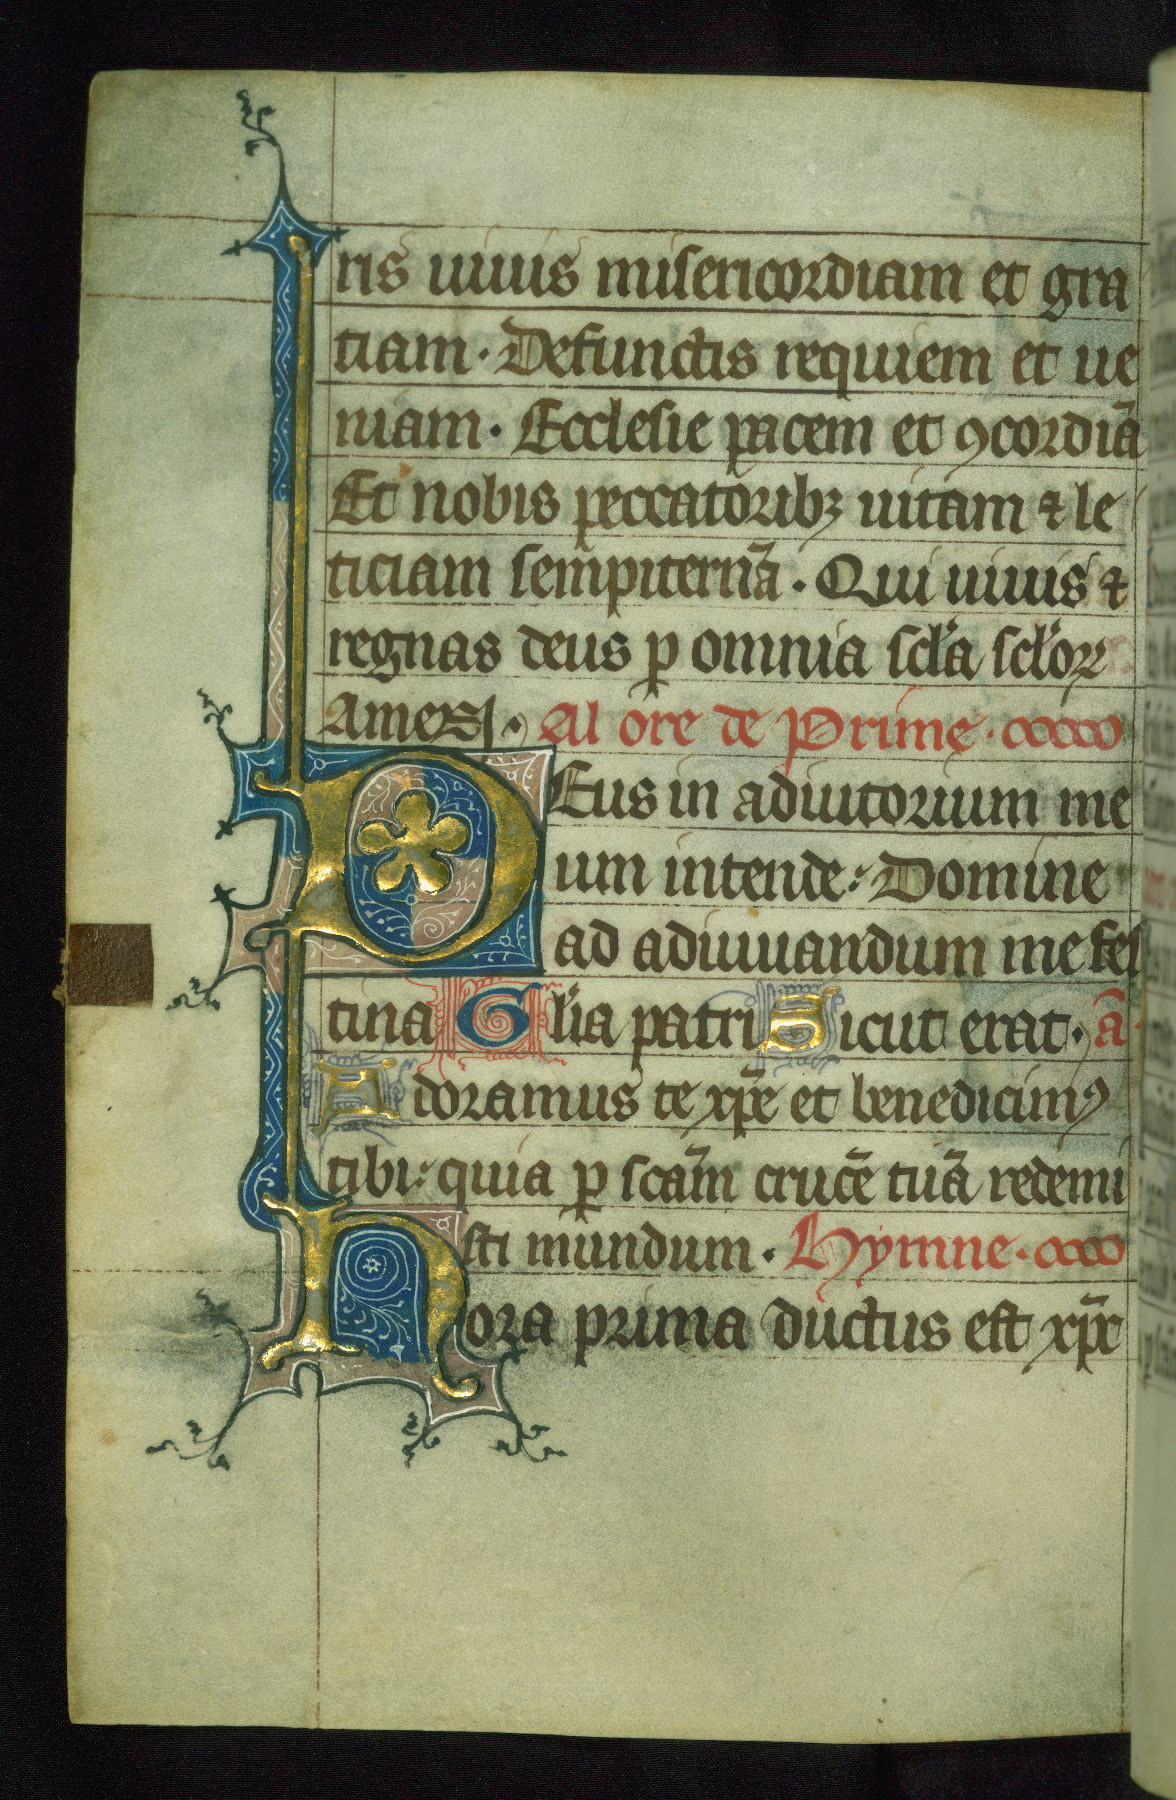 ris uiuis misericordiam et gra
tiam· Defunctis requiem et ue
niam· Ecclesie pacem et ꝯcordiā
Et nobis peccatoribꝫ uitam ⁊ le
ticiam sempiternā· Qui uiuis ⁊
regnas deus ꝑ omnia scła scłoꝝ
Amen· Al ore de Prime·
Deus in adiutorium me
um intende: Domine
ad adiuuandum me fes
tina Głia patri Sicut erat· ā
Adoramus te xp̄e et benedicimꝰ
tibi: quia ꝑ scām crucē tuā redemi
sti mundum· Hymne·
Hora prima ductus est xp̄c